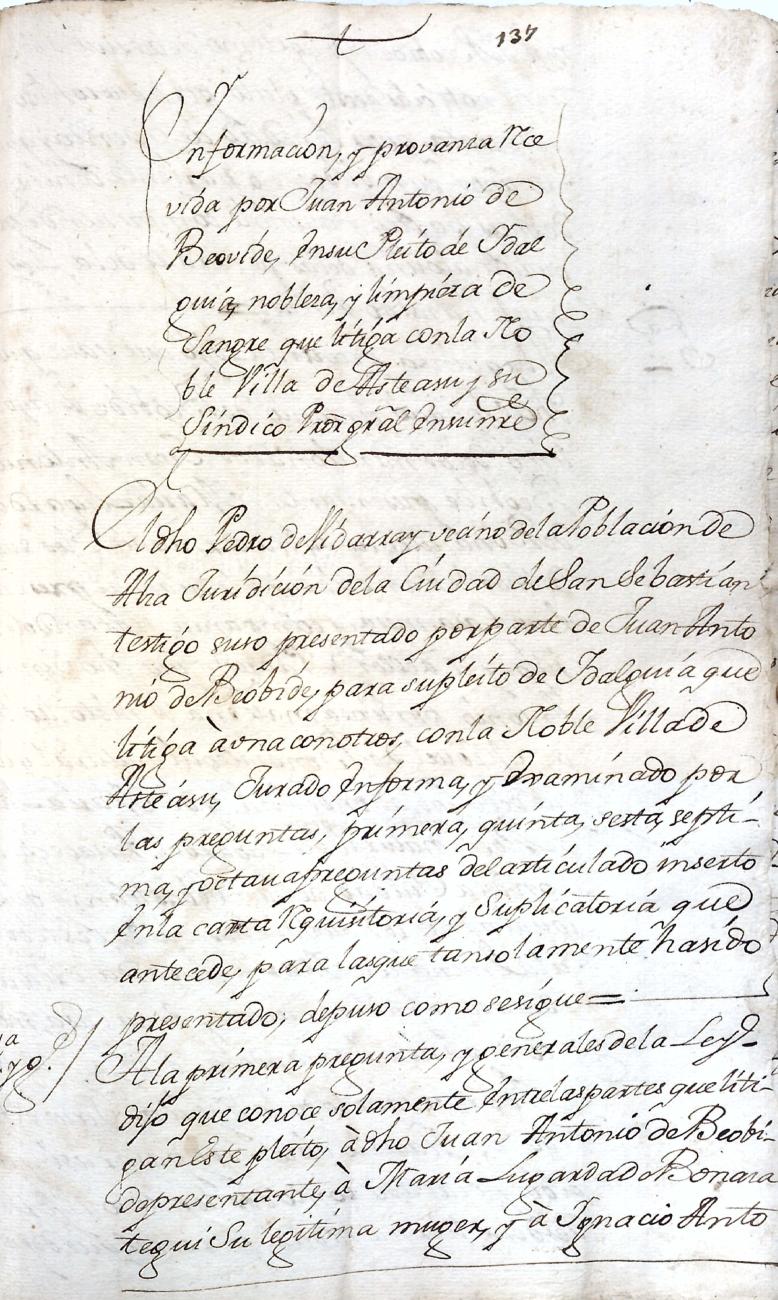 137
Informacion, y provanza Rce
vida por Juan Antonio de
Beovide, Ensu Pleito de Ydal
guia, nobleza, y limpieza de
Sangre que litiga conla No
ble Villa de Asteasu y su
Sindico Pror gral Ensunre
El dho Pedro de Vidarray vecino dela Poblacion de
Alza Juridicion dela Ciudad de San Sebastian
testigo suso presentado por parte de Juan Anto
nio de Beobide, para supleito de Ydalguia que
litiga à vna con otros, conla Noble Villa de
Asteasu, Jurado Enforma, y Examinado por
las preguntas, primera, quinta, sexta, septi-
ma, y octava preguntas del articulado inserto
Enla carta Rquisitoria, y Suplicatoria que
antecede, para lasque tansolamente hasido
presentado, depuso como sesigue=
A la primera pregunta, y generales de la Ley-
dijo que conoce solamente Entrelas partes que liti-
gan Este pleito, à dho Juan Antonio de Beobi-
de presentante, à Maria Lugarda de Bonaza
tegui Su legitima muger, y à Ygnacio Anto